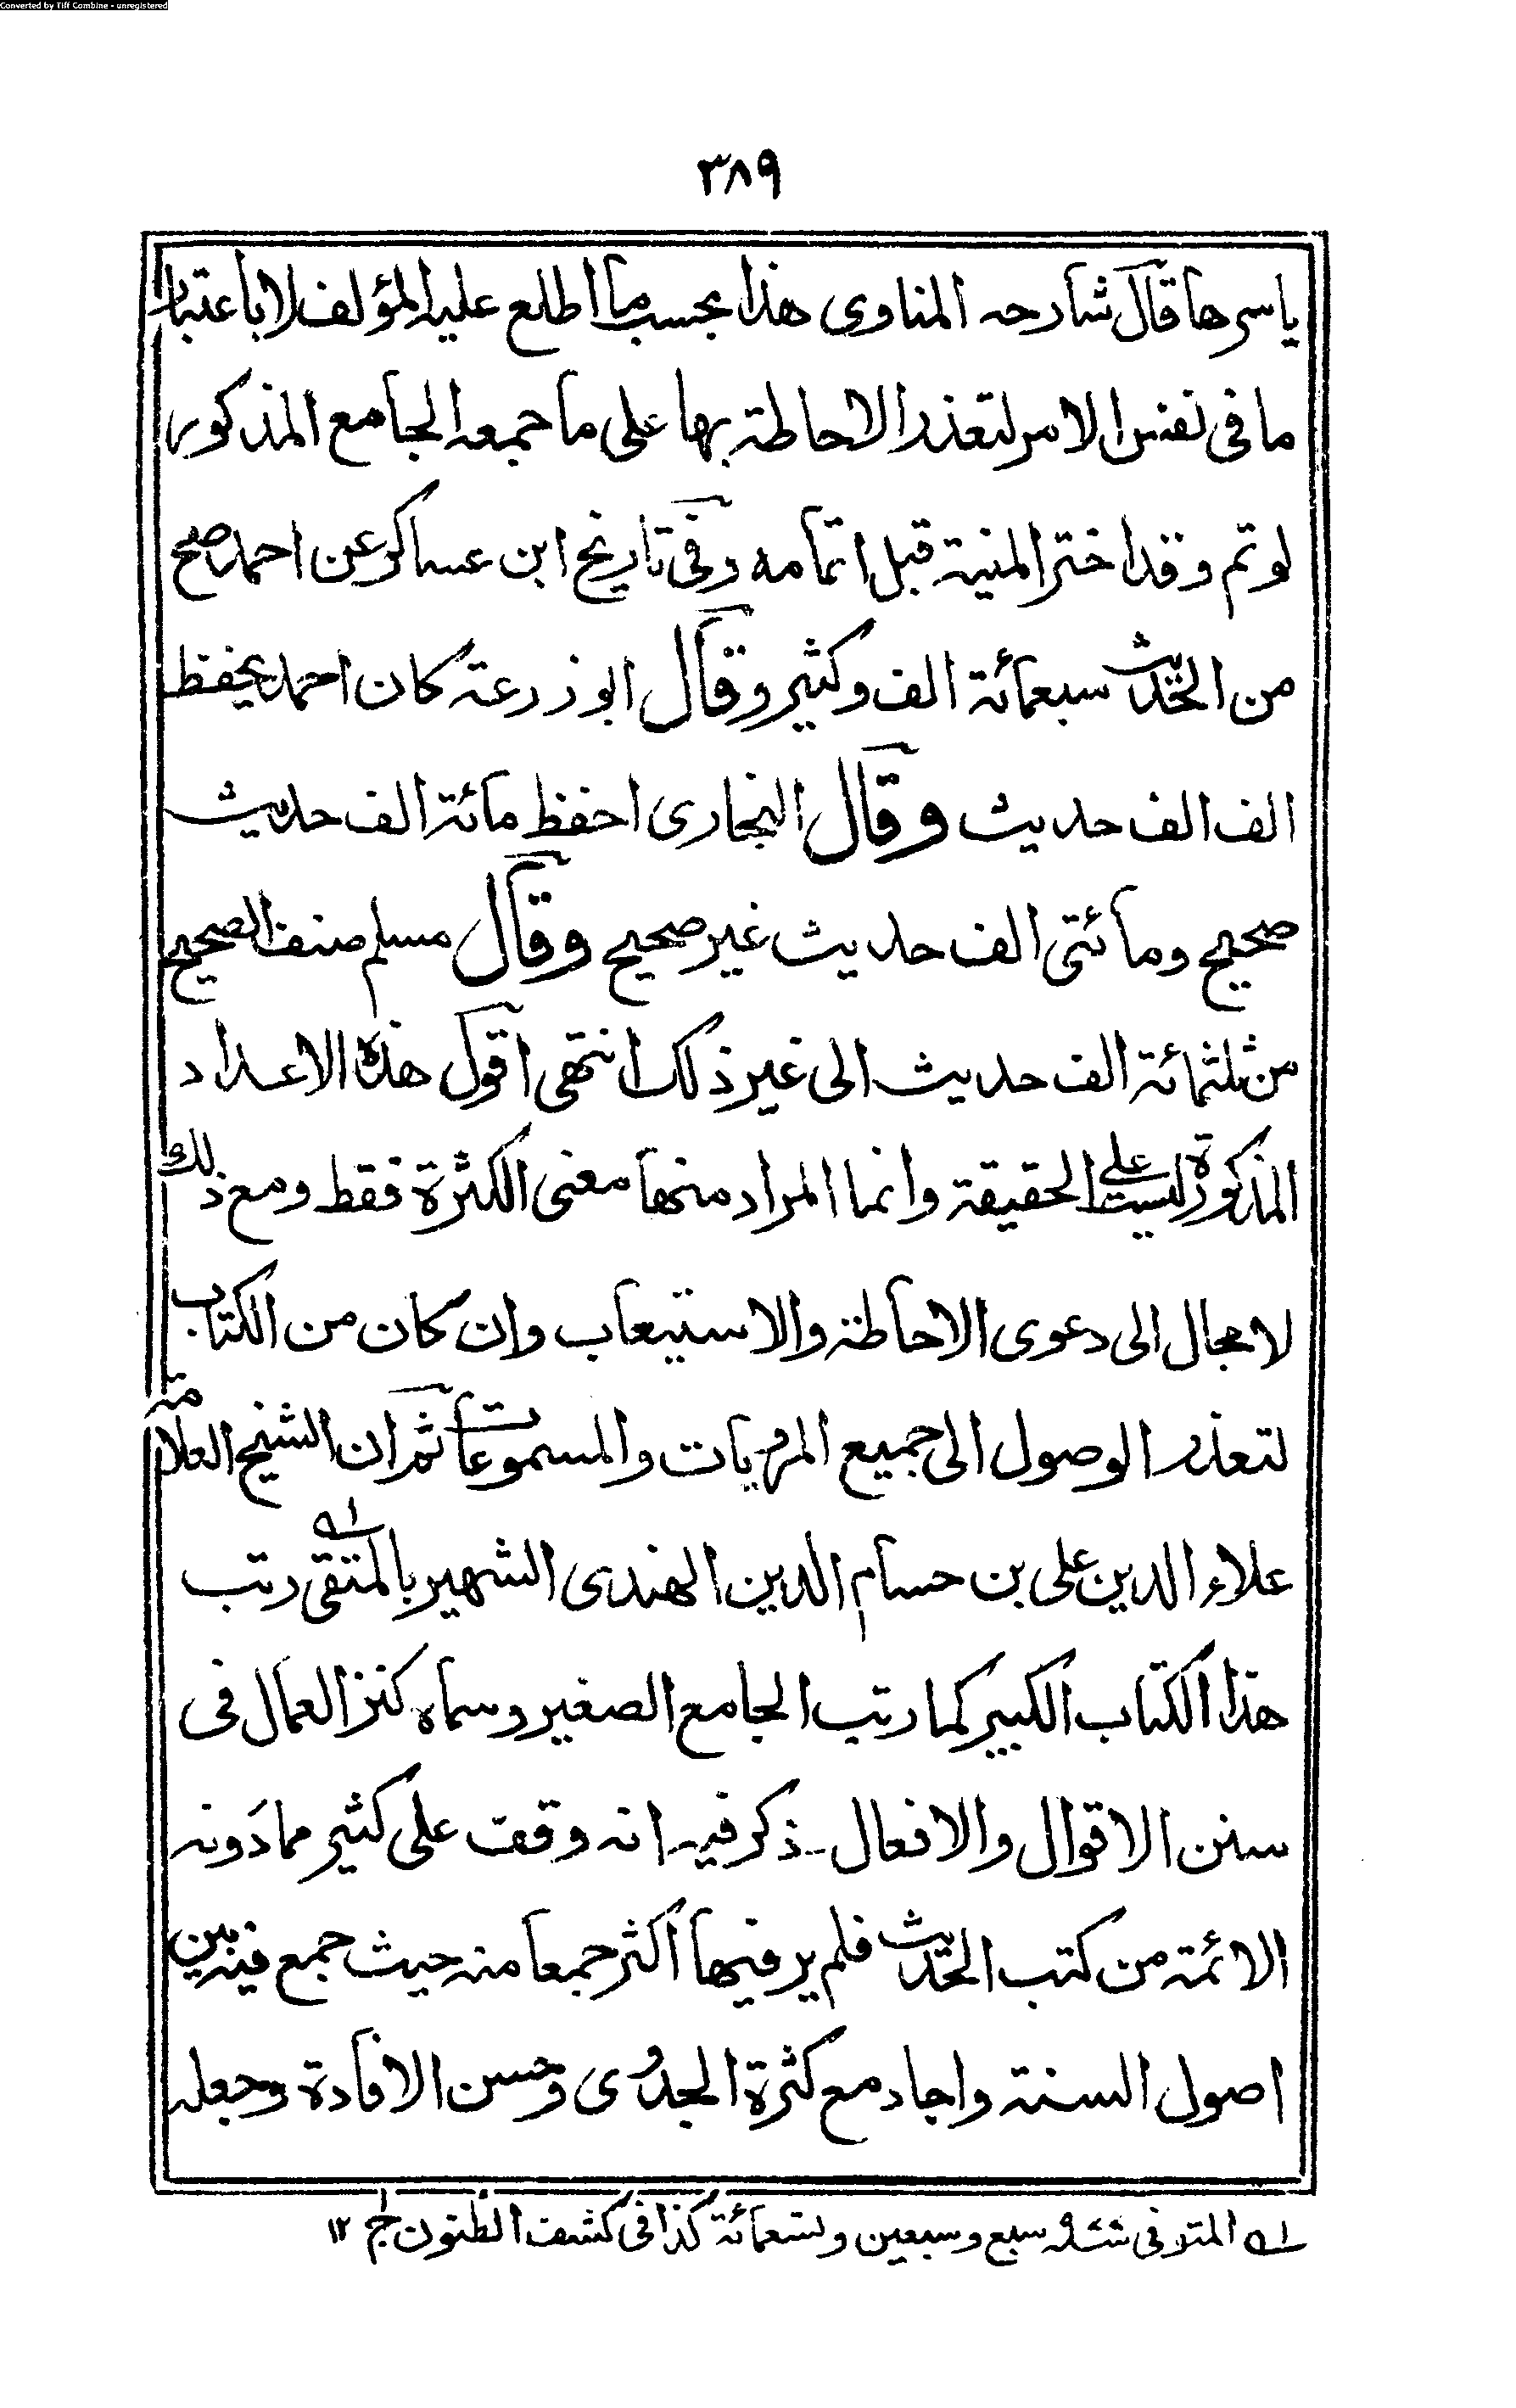 Converted by Tiff Combine - unregistered
٣٨٩
باسرها قال شارحه المناوى هذا بحسب ما اطلع عليه المؤلف لا باعتبار
ما فى نفس الامر لتعذر الاحاطة بها على ما جمعه الجامع المذكور
لو تم وقد اخترالمنية قبل اتمامه وفى تاريخ ابن عساكر عن احمد صح
من الحديث سبعمائة الف وكثير وقال ابو زرعة كان احمد يحفظ
الف الف حديث وقال البخارى احفظ مائة الف حديث
صحيح ومائتى الف حديث غير صحيح وقال مسلم صنف الصحيح
من ثلثمائة الف حديث الى غير ذلك انتهى اقول هذه الاعداد
المذكورة ليست على الحقيقة وانما المراد منها معنى الكثرة فقط ومع ذلك
لا مجال الى دعوى الاحاطة والاستيعاب وان كان من الكتاب
لتعذر الوصول الى جميع المرويات والمسموعات ثم ان الشيخ العلامة
علاء الدين على بن حسام الدين الهندى الشهير بالمتقى ١ه رتب
هذا الكتاب الكبير كما رتب الجامع الصغير وسماه كنز العمال فى
سنن الاقوال والافعال - ذكر فيه انه وقف على كثير مما دونه
الائمة من كتب الحديث فلم ير فيها اكثر جمعا منه حيث جمع فيه بين
اصول السنة واجاد مع كثرة الجدوى وحسن الافادة وجعله
١ه المتوفى سنة ٩٧٧ سبع وسبعين وتسعمائة كذا فى كشف الظنون ج ١٢